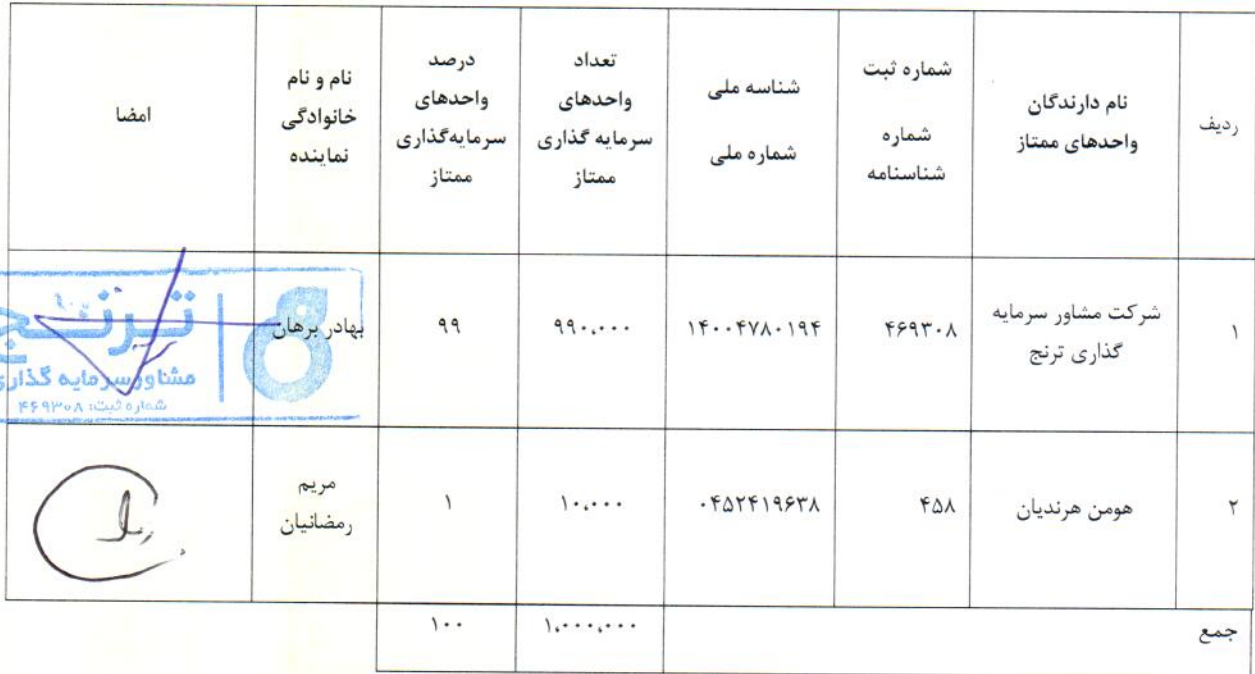 ردیف
نام دارندگان
واحدهای ممتاز
شماره ثبت
شماره
شناسنامه
شناسه ملی
شماره ملی
تعداد
واحدهای
سرمایه گذاری
ممتاز
درصد
واحدهای
سرمایه‌گذاری
ممتاز
نام و نام
خانوادگی
نماینده
امضا
۱
شرکت مشاور سرمایه
گذاری ترنج
۴۶۹۳۰۸
۱۴۰۰۴۷۸۰۱۹۴
۹۹۰,۰۰۰
۹۹
بهادر برهان
ترنج
مشاور سرمایه گذاری
شماره ثبت: ۴۶۹۳۰۸
۲
هومن هرندیان
۴۵۸
۰۴۵۲۴۱۹۶۳۸
۱۰,۰۰۰
۱
مریم
رمضانیان
جمع
۱,۰۰۰,۰۰۰
۱۰۰